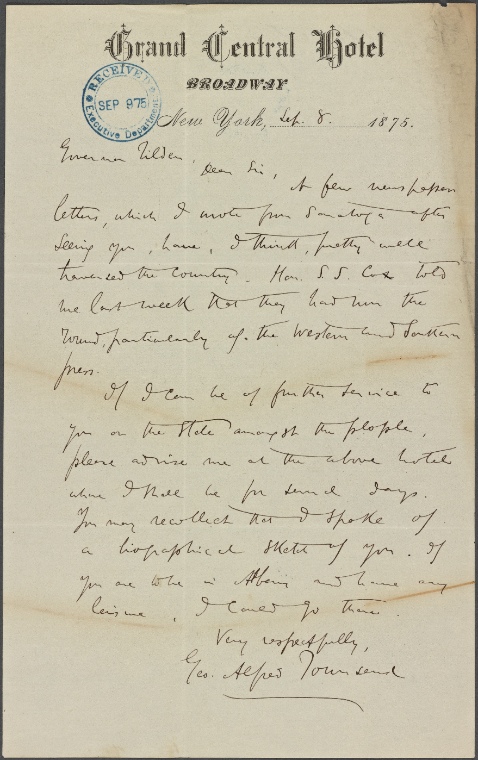 Grand Central Hotel
BROADWAY
RECEIVED
SEP 9 75
Executive Department
New York, Sep. 8. 1875.
Governor Tilden,
Dear Sir,
A few newspaper
letters, which I wrote from Saratoga after
seeing you, have, I think, pretty well
traversed the Country. Hon. S. S. Cox told
me last week that they had run the
round, particularly of the Western and Southern
press.
If I can be of further service to
you or the State amongst the people,
please advise me at the above hotel
where I shall be for several days.
You may recollect that I spoke of
a biographical sketch of you. If
you are to be in Albany and have any
leisure, I could go there.
Very respectfully,
Geo. Alfred Townsend